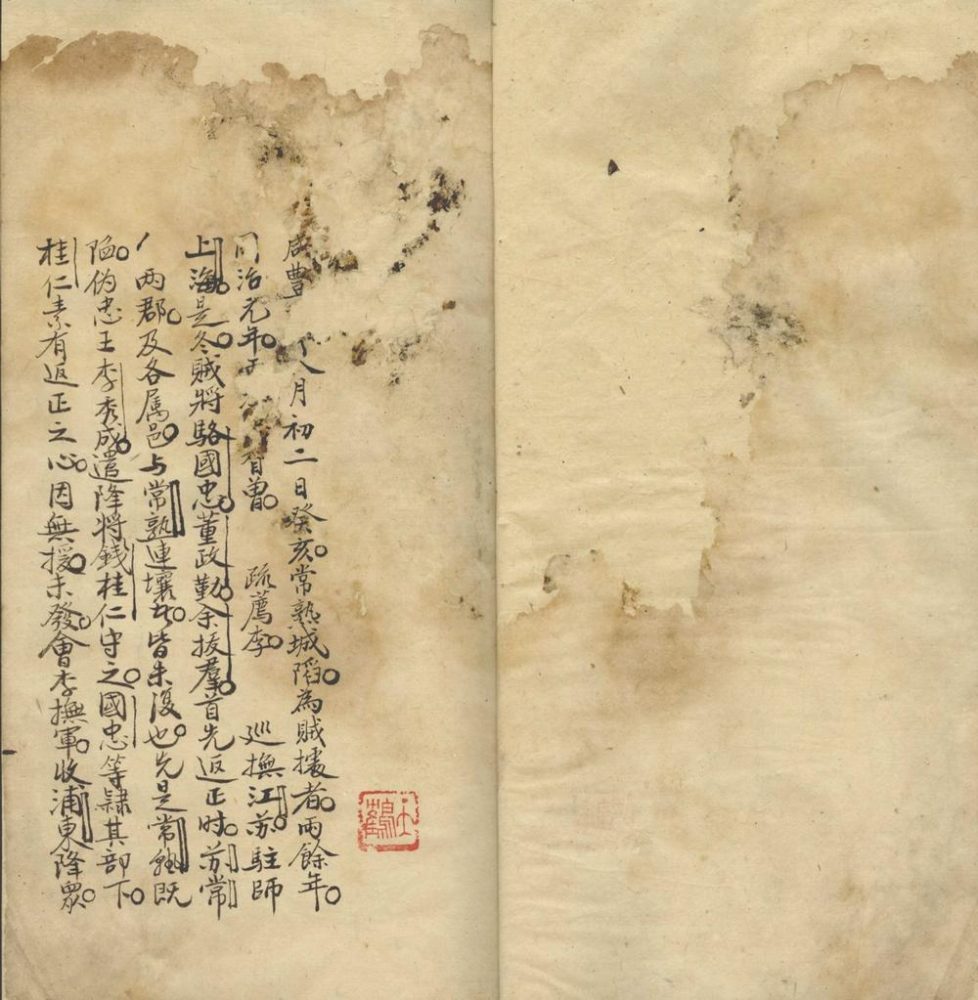 咸豐八月初二日癸亥常熟城陷為賊據者兩餘年
同治元年曾疏薦李巡撫江苏駐師
上海是冬賊將駱國忠董政勤余拔羣首先返正时苏常
兩郡及各属邑与常熟連壤者皆未復也先是常熟既
陷伪忠王李秀成遣降将錢桂仁守之國忠等隸其部下
桂仁素有返正之心因無援未發會李撫軍收浦東降眾